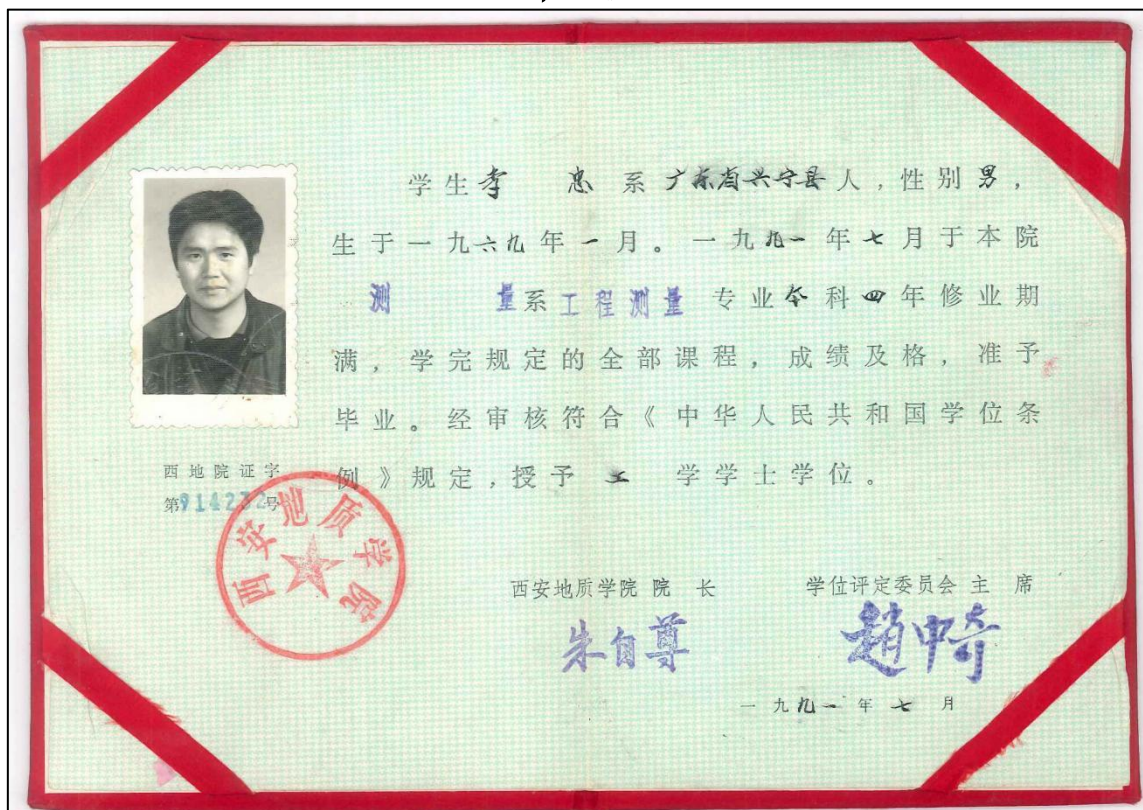 学生李 忠 系 广东省兴宁县 人，性别 男，
生于一九六九年一月。一九九一年七月于本院
测 量系工程测量 专业本科四年修业期
满，学完规定的全部课程，成绩及格，准予
毕业。经审核符合《中华人民共和国学位条
例》规定，授予 工 学学士学位。
西地院证字
第914232号
西安地质学院
西安地质学院 院 长 学位评定委员会 主 席
朱自尊 趙中奇
一九九一年七月